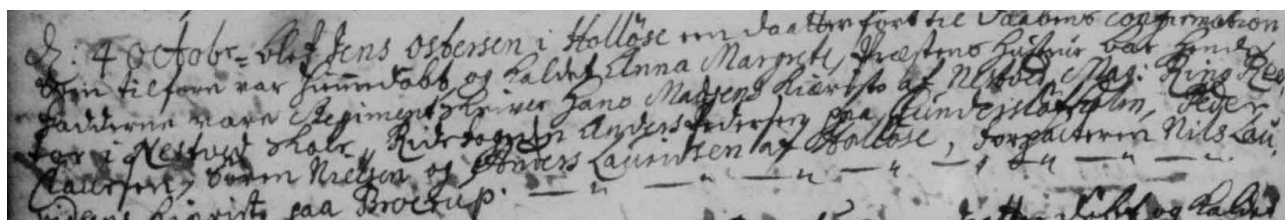 d: 4 Octobr= blef Jens Ostersen i Holløse een daatter ført til Daabens Confirmation
som tilforn var hiemmedøbt, og kaldet Anna Margrete, Præstens Hustrue bar hende
Fadderne vare Regimentskriver Hans Madsens Kiæriste af Nestved, Mag: Ring Rec
tor i Nestved Skole, Ridefogden Anders Pedersen paa Gunderslefholm, Peder
Laursen, Søren Nielsen og Anders Lauridsen af Holløse, Forpagteren Nils Lau
ridsens Kiæriste paa Broxup.
daatter døbt og kaldet